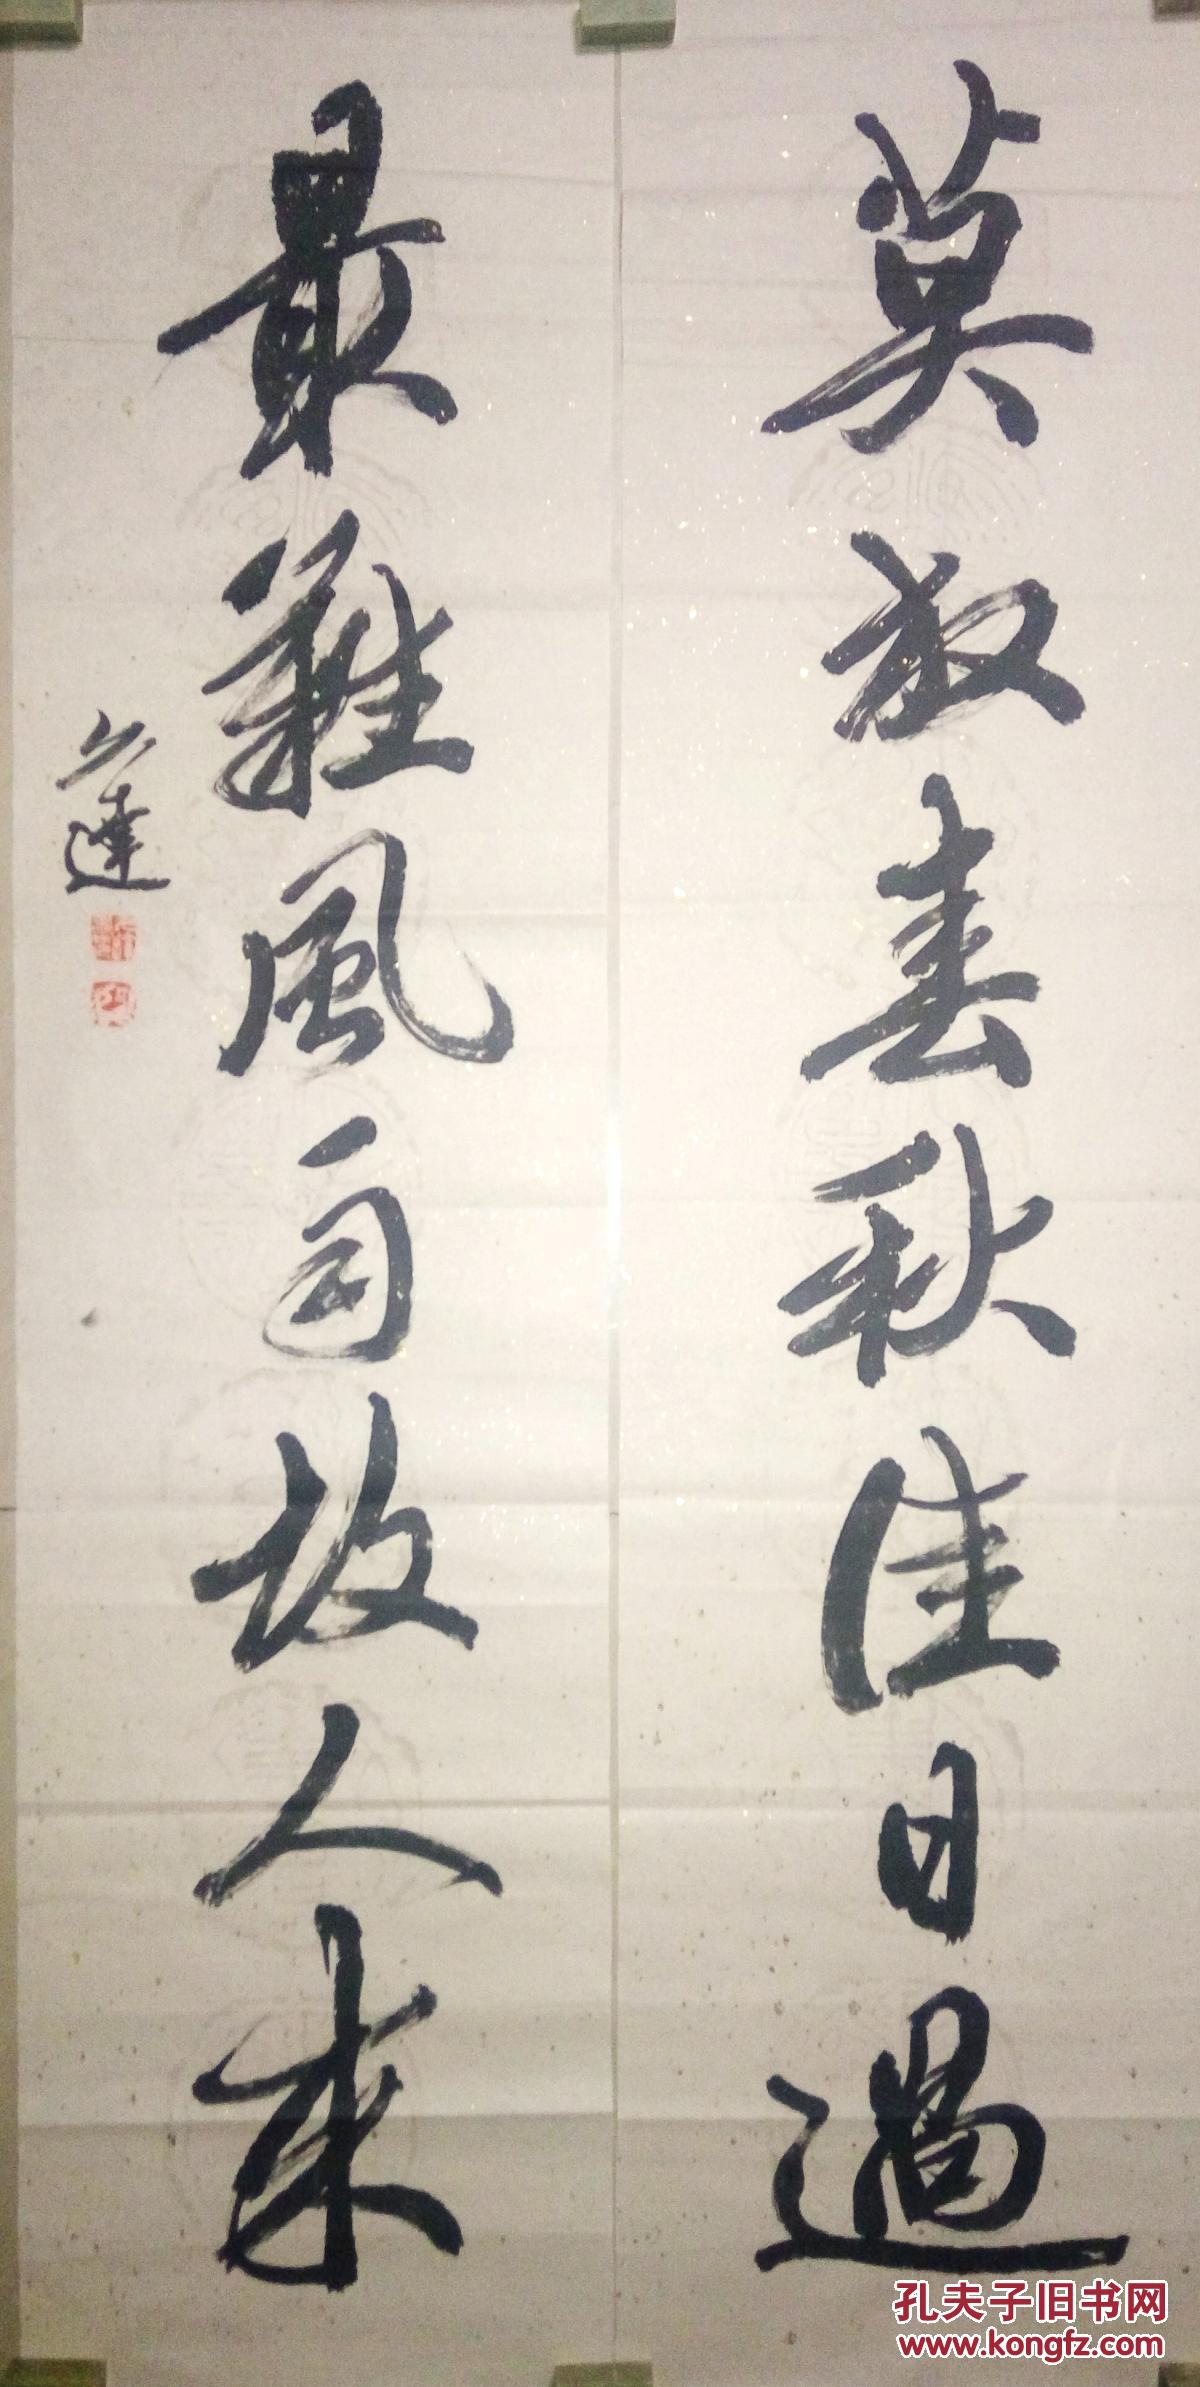 莫放春秋佳日過
最難風雨故人来
達
孔夫子旧书网
www.kongfz.com